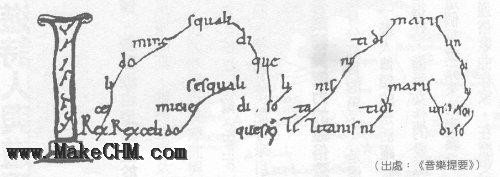 squali maris
do mine di ti di un
li que ni di
sesquali li nis maris
ce mine di. so ta tidi un
Rex. Rex celi do Ti Titanis ni di so
www.MakeCHM.com
（出處：《音樂提要》）